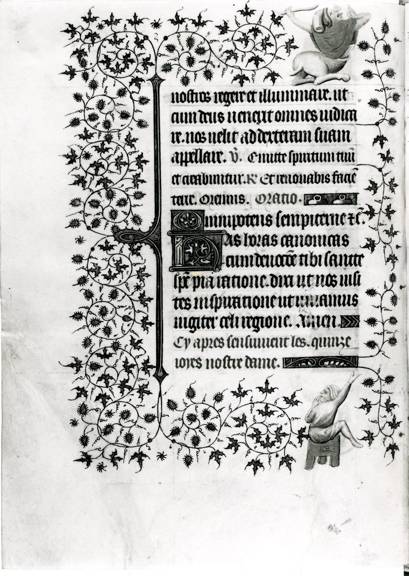 nostros regere et illuminare. ut
cum deus venerit omnes iudica
re. nos velit ad dexteram suam
apellare. V. Emitte spiritum tuū
et creabuntur. R. Et renovabis faciē
terre. Oremus. Oratio.
Omnipotens sempiterne
Has horas canonicas
cum devocōe tibi sancte
spē pia ratione. dixi ut nos visi
tes inspiratione ut vivamus
iugiter celi regione. Amen.
Cy apres sensuivent les. quinze
ioies nostre dame.